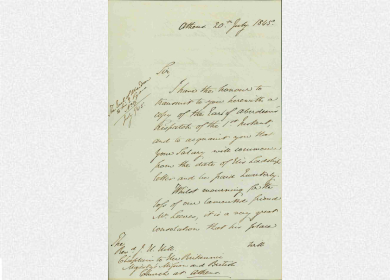 Athens 20th July 1845.
Sir
I have the honour to
transmit to you herewith a
copy of the Earl of Aberdeen
Dispatch of the 1st Instant,
and to acquaint you that
Your Salary will commence
from the date of His Lordship
letter and be paid Quarterly.
Whilst mourning for the
loss of our lamented friend
Mr it is a very great
consolation that his place
will
The
Revd J. H. Hill
Chaplain to Her Britannic
Majesty's Mission and British
Church at Athens.